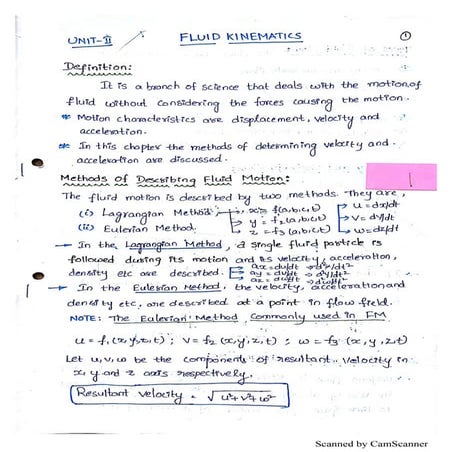 UNIT-II FLUID KINEMATICS 1
Definition:
It is a branch of science that deals with the motion of
fluid without considering the forces causing the motion.
* Motion characteristics are displacement, velocity and
acceleration.
* In this chapter the methods of determining velocity and
acceleration are discussed.
Methods of Describing Fluid Motion:
The fluid motion is described by two methods. They are,
(i) Lagrangian Method → x = f1(a,b,c,t) → u = dx/dt
(ii) Eulerian Method. → y = f2(a,b,c,t) → v = dy/dt
→ z = f3(a,b,c,t) → w = dz/dt
→ In the Lagrangian Method, a single fluid particle is
followed during its motion and its velocity, acceleration,
density etc are described. → ax = du/dt → d²x/dt²
→ ay = dv/dt → d²y/dt²
→ In the Eulerian Method, the velocity, acceleration and
density etc, are described at a point in flow field.
NOTE: The Eulerian Method Commonly used in FM
u = f1(x,y,z,t) ; v = f2 (x,y,z,t) ; w = f3 (x,y,z,t)
Let u, v, w be the components of resultant velocity in
x, y and z axis respectively.
Resultant velocity = √u²+v²+w²
Scanned by CamScanner